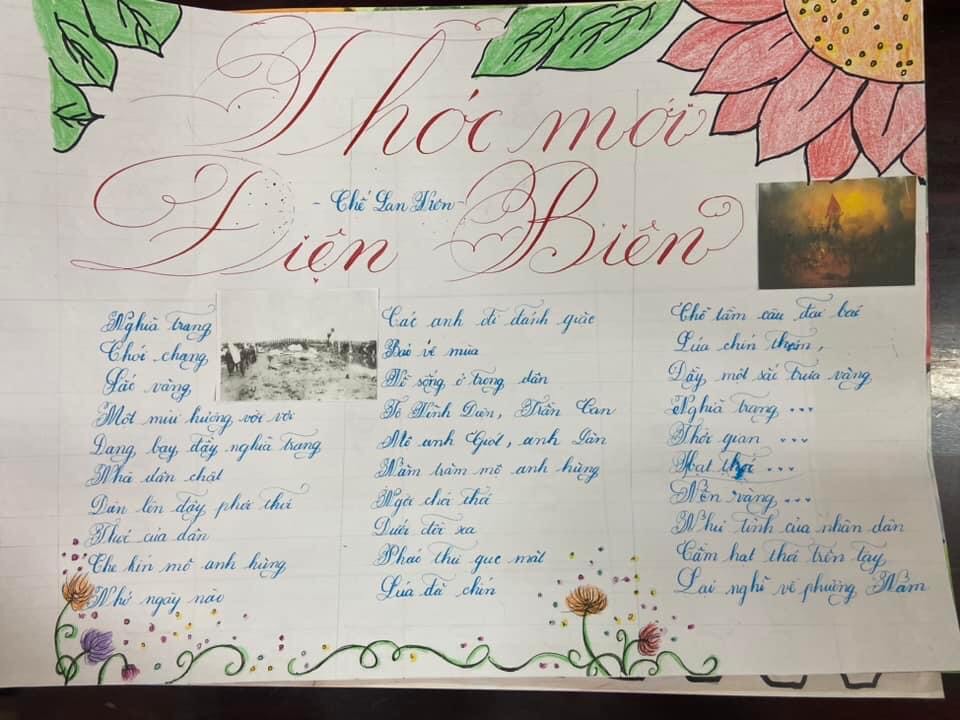 Thóc mới
Điện Biên
- Chế Lan Viên -
Nghĩa trang
Chói chang
Sắc vàng
Một mùi hương vời vợi
Đang bay đầy nghĩa trang
Nhà dân chật
Dân lên đây phơi thóc
Thóc của dân
Che kín mộ anh hùng
Nhớ ngày nào
Các anh đi đánh giặc
Bảo vệ mùa
Vì sống ở trong dân
Tô Vĩnh Diện, Trần Can
Mộ anh Giót, anh Đàn
Nằm trăm mộ anh hùng
Ngời chói thóc
Dưới đồi xa
Pháo thù gục mặt
Lúa đã chín
Chỗ tầm cầu đại bác
Lúa chín thơm,
Dậy một sắc trưa vàng
Nghĩa trang ...
Thời gian ...
Hạt thóc ...
Nền vàng ...
Như tình của nhân dân
Cầm hạt thóc trên tay
Lại nghĩ về phương Nam